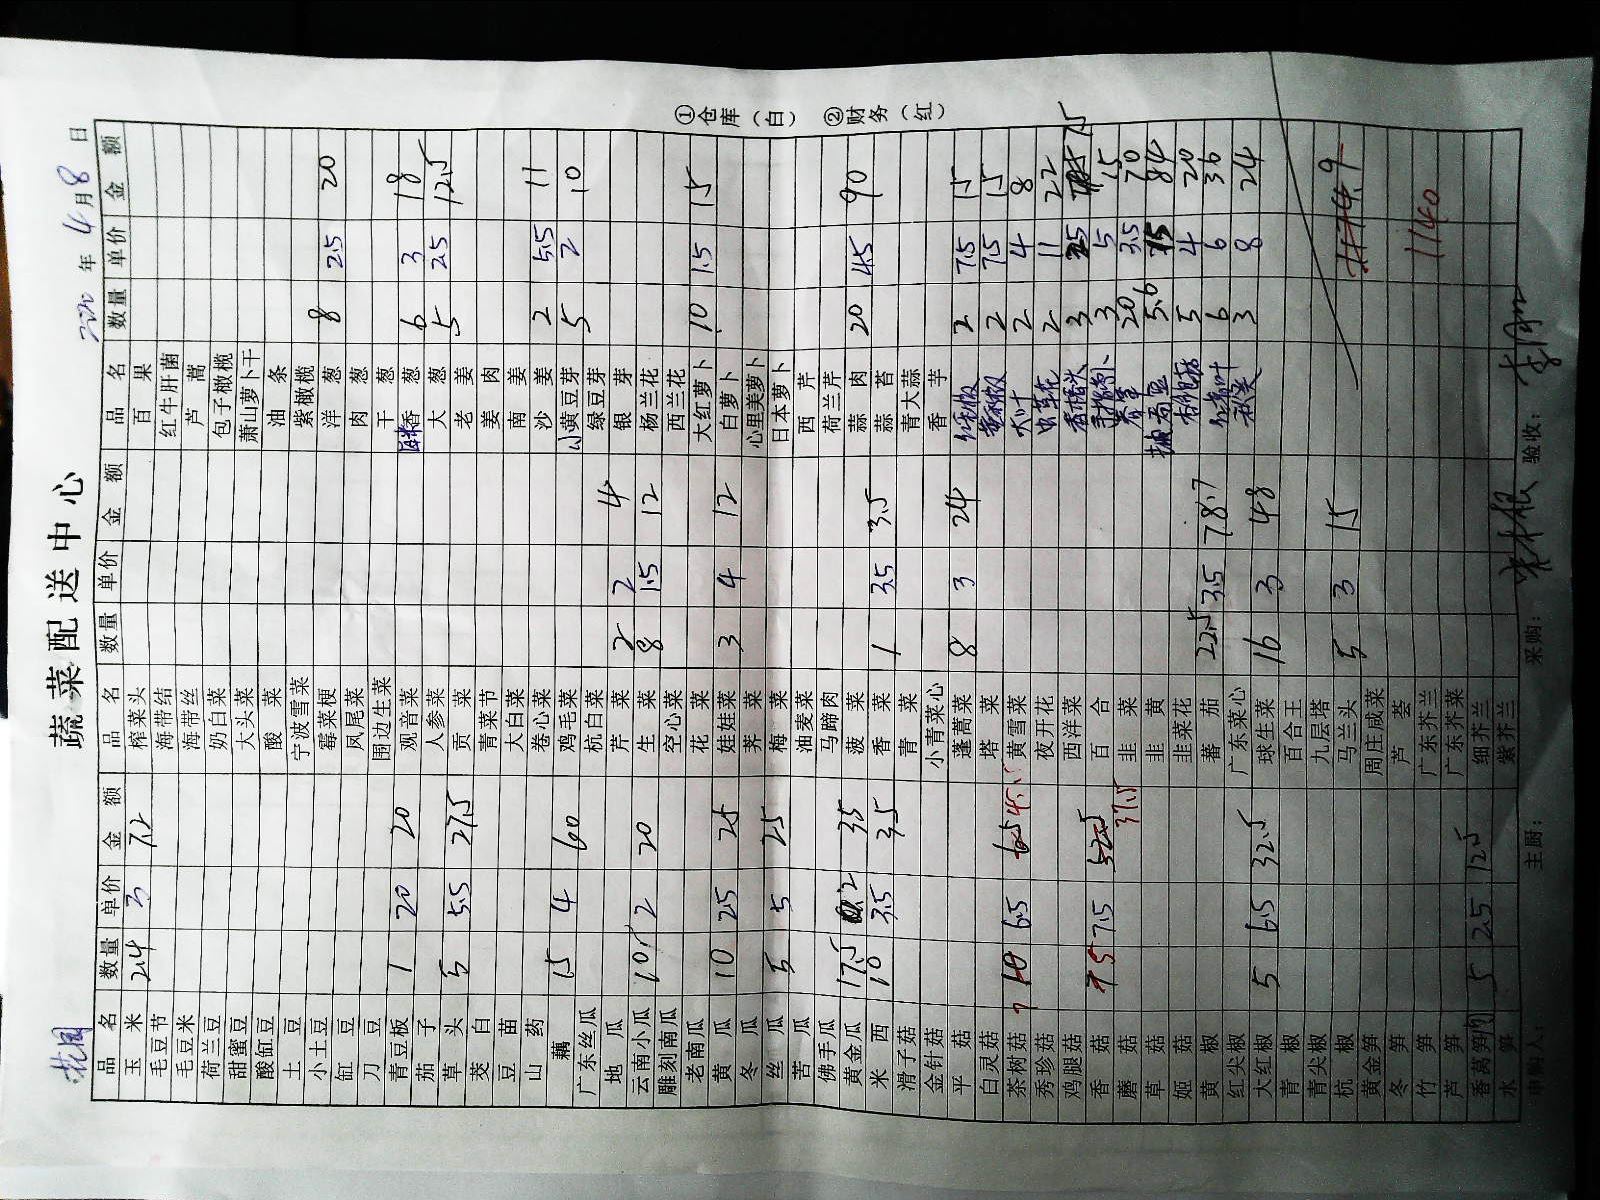 蔬菜配送中心
花园 年 4月8日
品名 数量 单价 金额 品名 数量 单价 金额 品名 数量 单价 金额
玉米 24 3 72 榨菜头 百果
毛豆节 海带结 红牛肝菌
毛豆米 海带丝 芦蒿
荷兰豆 奶白菜 包子橄榄
甜蜜豆 大头菜 萧山萝卜干
酸缸豆 酸菜 油条
土豆 宁波雪菜 紫橄榄
小土豆 霉菜梗 洋葱 8 2.5 20
缸豆 凤尾菜 肉葱
刀豆 围边生菜 干葱
青豆板 1 20 20 观音菜 香葱 6 3 18
茄子 人参菜 大葱 5 2.5 12.5
草头 5 5.5 27.5 贡菜 老姜
茭白 青菜节 姜肉
豆苗 大白菜 南姜
山药 卷心菜 沙姜 2 5.5 11
藕 15 4 60 鸡毛菜 黄豆芽 5 2 10
广东丝瓜 杭白菜 绿豆芽
地瓜 芹菜 2 2 4 银芽
云南小瓜 10 2 20 生菜 8 1.5 12 杨兰花
雕刻南瓜 空心菜 西兰花
老南瓜 花菜 大红萝卜 10 1.5 15
黄瓜 10 2.5 25 娃娃菜 3 4 12 白萝卜
冬瓜 荠菜 心里美萝卜
丝瓜 5 5 25 梅菜 日本萝卜
苦瓜 油麦菜 西芹
佛手瓜 马蹄肉 荷兰芹
黄金瓜 17.5 2 35 菠菜 蒜肉 20 4.5 90
米西 10 3.5 35 香菜 1 3.5 3.5 蒜苔
滑子菇 青菜 青大蒜
金针菇 小青菜心 香芋
平菇 蓬蒿菜 8 3 24 红彩椒 2 7.5 15
白灵菇 塔菜 黄彩椒 2 7.5 15
茶树菇 7 6.5 45.5 黄雪菜 大叶 2 4 8
秀珍菇 夜开花 虫草花 2 11 22
鸡腿菇 西洋菜 3 25 75
香菇 5 7.5 37.5 百合 3 5 15
蘑菇 韭菜 20 3.5 70
草菇 韭黄 5.6 15 84
姬菇 韭菜花 5 4 20
黄椒 蕃茄 22.5 3.5 78.7 6 6 36
红尖椒 广东菜心 3 8 24
大红椒 5 6.5 32.5 球生菜 16 3 48
青椒 百合王
青尖椒 九层塔
杭椒 马兰头 5 3 15
黄金笋 周庄咸菜
冬笋 芦荟
竹笋 广东芥兰 1140
芦笋 广东芥菜
香莴笋肉 5 2.5 12.5 细芥兰
水笋 紫芥兰
申购人: 主厨: 采购: 验收:
①仓库(白) ②财务(红)